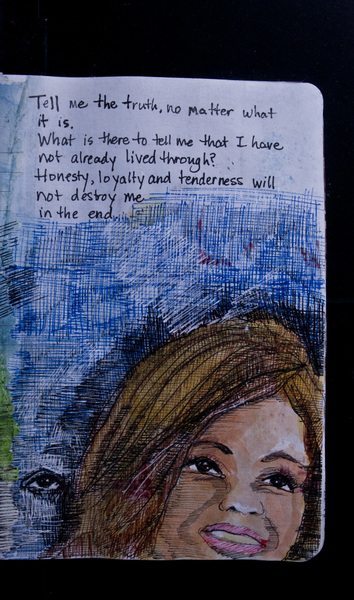 Tell me the truth, no matter what
it is.
What is there to tell me that I have
not already lived through?
Honesty, loyalty and tenderness will
not destroy me
in the end...